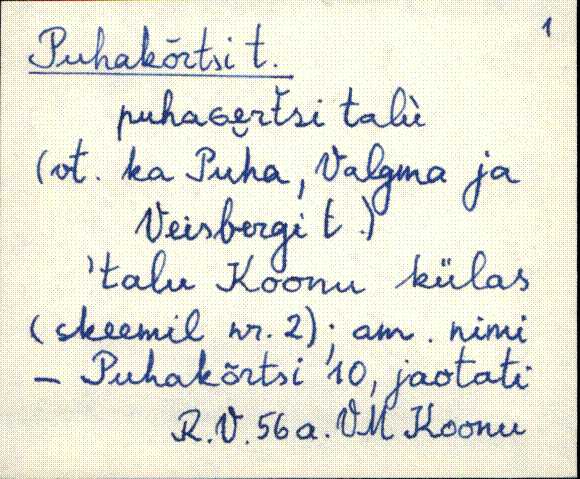 1
Puhakõrtsi t.
puhaɢe̮r̆tsi talù
(vt. ka Puha, Valgma ja
Veisbergi t.)
'talu Koonu külas
(skeemil nr. 2); am. nimi
– Puhakõrtsi 10, jaotati
R.V. 56a. VM Koonu